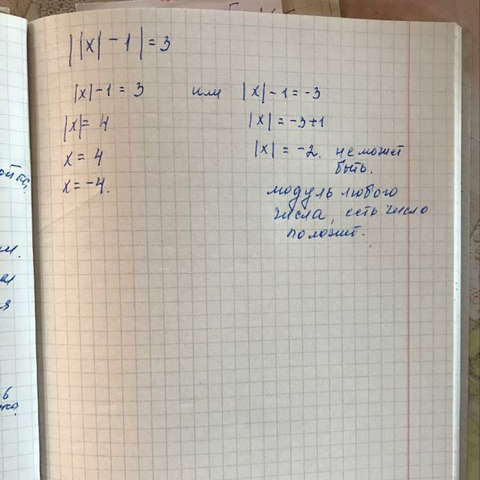 ||x| - 1| = 3
|x| - 1 = 3 или |x| - 1 = -3
|x| = 4
|x| = -3+1
x = 4
|x| = -2. не может
быть.
x = -4.
модуль любого
числа, есть число
положит.